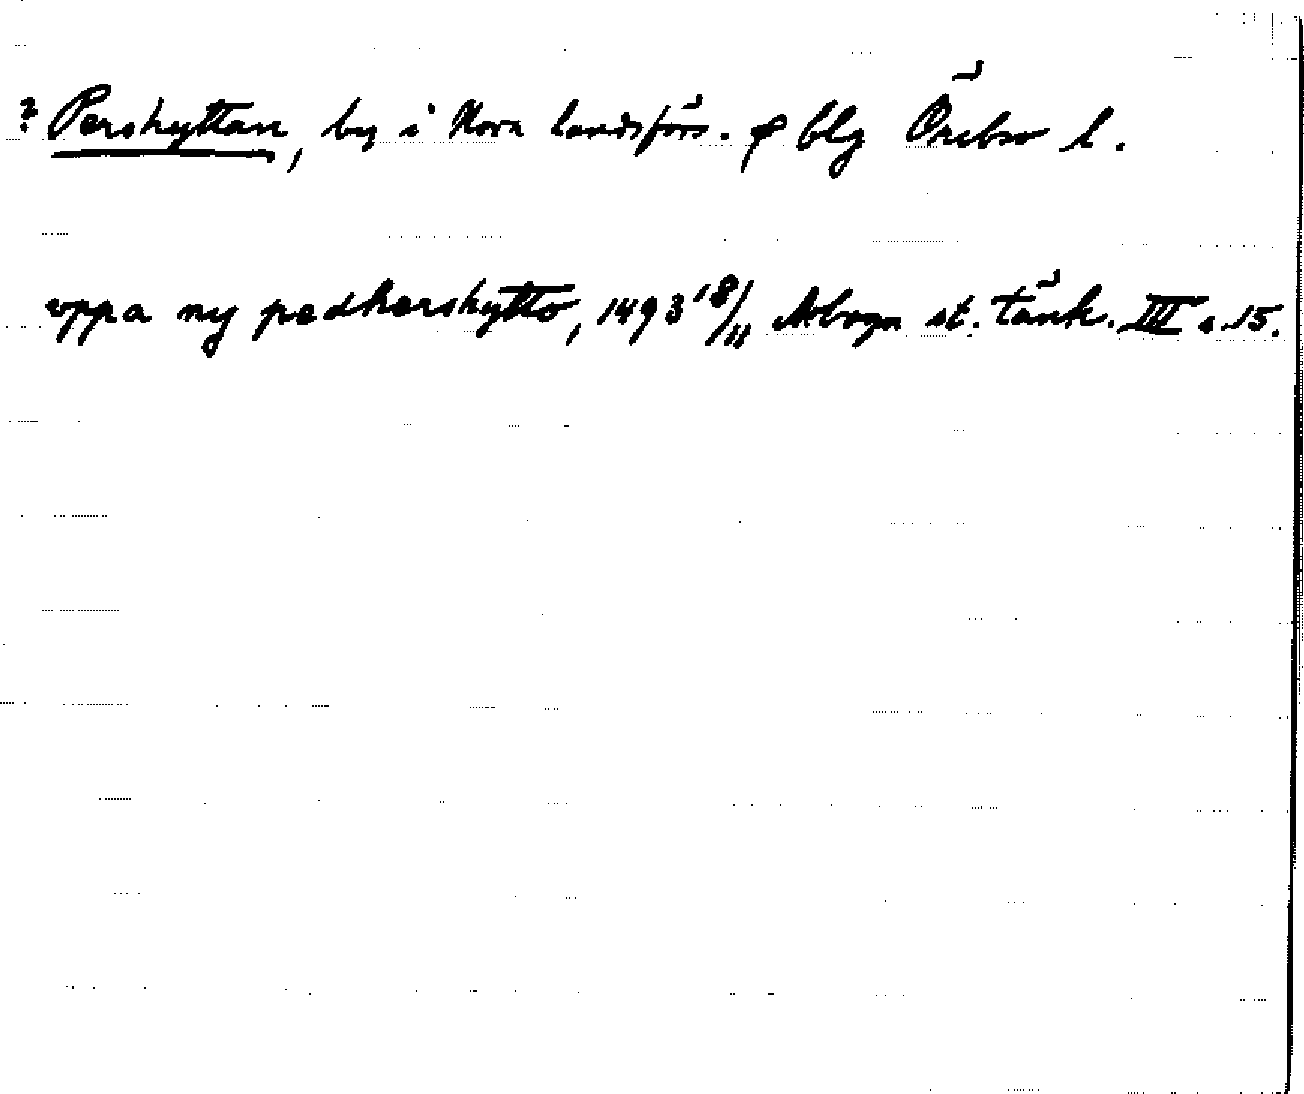 ? Pershyttan, by i Nora landsförs. o blg Örebro l.
vppa ny pedhershytto, 1493 18/11 Arboga st. tänk. III s. 15.